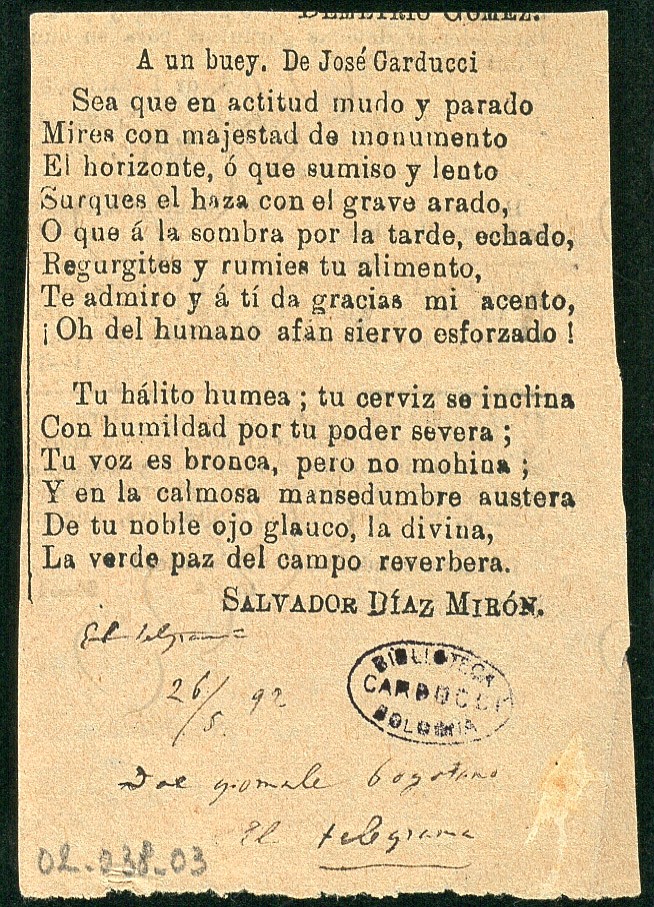 DEMETRIO GOMEZ.
A un buey. De José Carducci
Sea que en actitud mudo y parado
Mires con majestad de monumento
El horizonte, ó que sumiso y lento
Surques el haza con el grave arado,
O que á la sombra por la tarde, echado,
Regurgites y rumies tu alimento,
Te admiro y á tí da gracias mi acento,
¡Oh del humano afán siervo esforzado !
Tu hálito humea ; tu cerviz se inclina
Con humildad por tu poder severa ;
Tu voz es bronca, pero no mohina ;
Y en la calmosa mansedumbre austera
De tu noble ojo glauco, la divina,
La verde paz del campo reverbera.
SALVADOR DÍAZ MIRÓN.
El telegrama
26/5. 92
BIBLIOTECA
CARDUCCI
BOLOGNA
Dal giornale bogotano
El telegrama
02-038-03